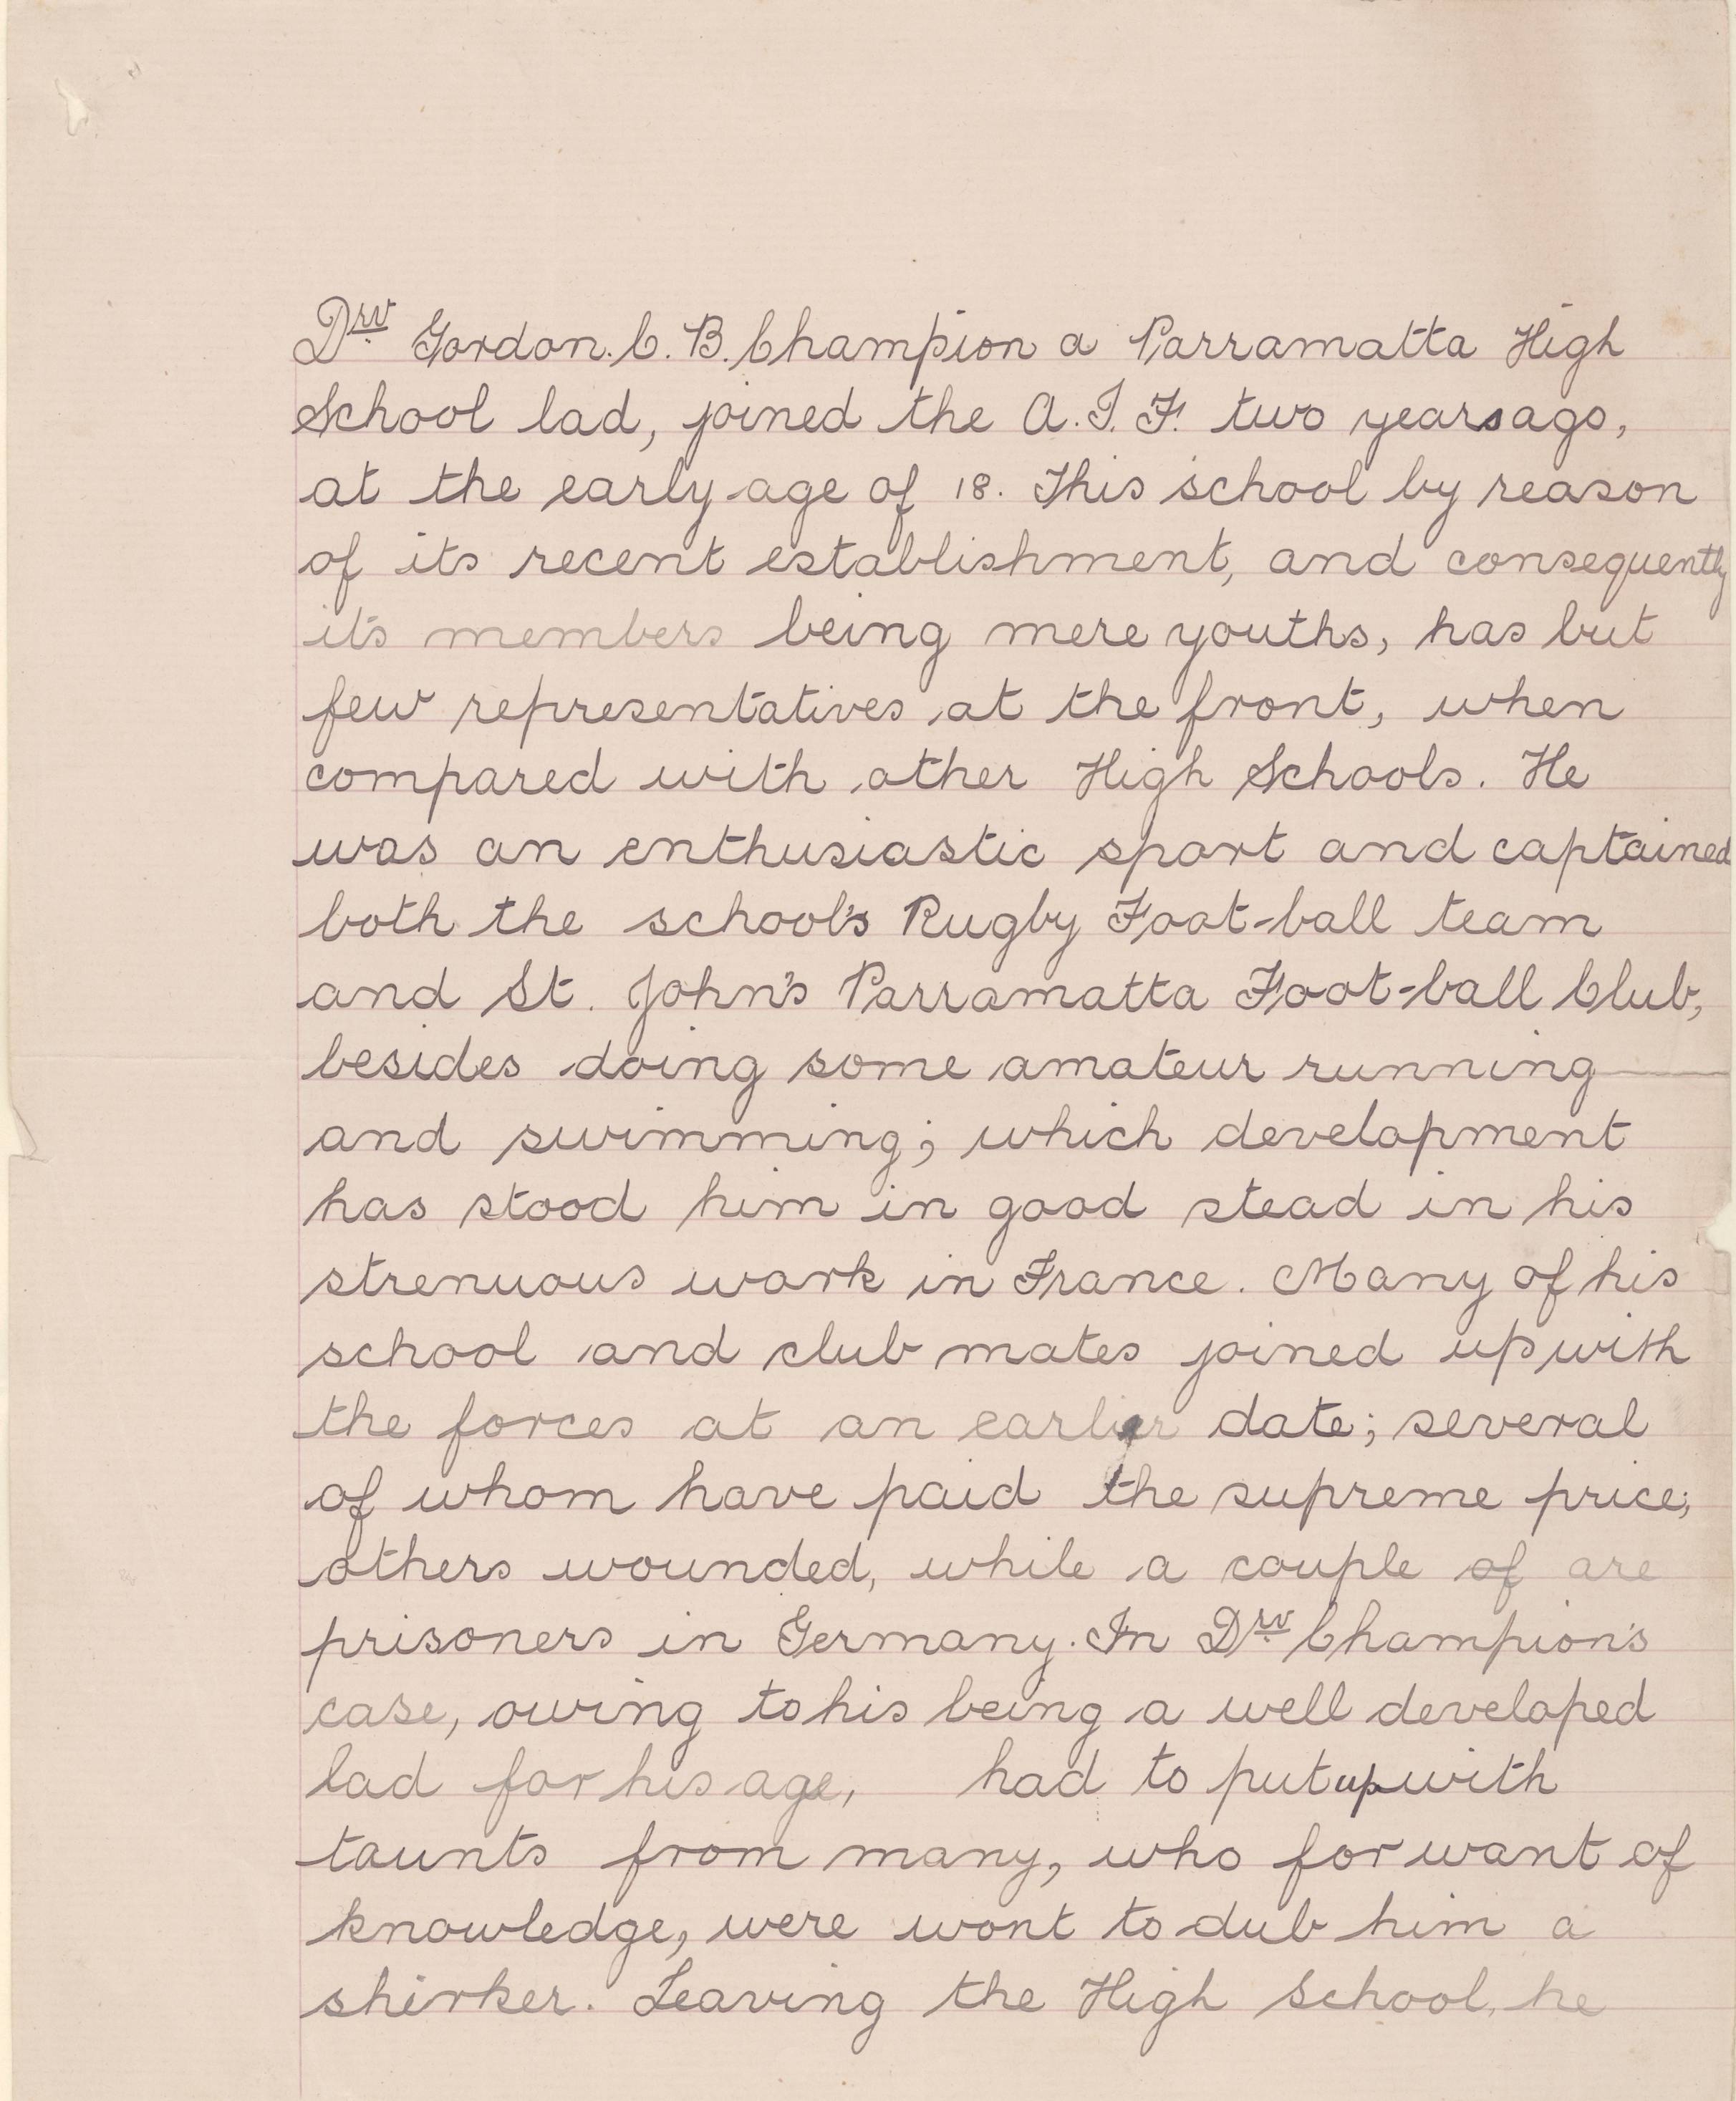 Drv. Gordon. C. B. Champion a Parramatta High
School lad, joined the A. I. F. two years ago,
at the early age of 18. This school by reason
of its recent establishment, and consequently
it's members being mere youths, has but
few representatives at the front, when
compared with other High Schools. He
was an enthusiastic sport and captained
both the school's Rugby Foot-ball team
and St. John's Parramatta Foot-ball Club,
besides doing some amateur running
and swimming; which development
has stood him in good stead in his
strenuous work in France. Many of his
school and club mates joined up with
the forces at an earlier date; several
of whom have paid the supreme price;
others wounded, while a couple of are
prisoners in Germany. In Drv. Champion's
case, owing to his being a well developed
lad for his age, had to put up with
taunts from many, who for want of
knowledge, were wont to dub him a
shirker. Leaving the High School, he